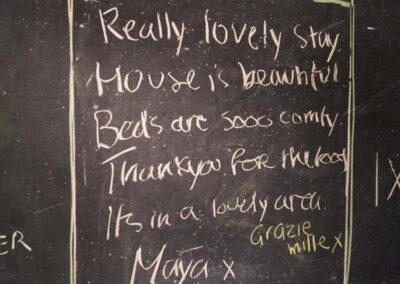 Really lovely stay.
House is beautiful
Beds are sooo comfy.
Thankyou for the food
Its in a lovely area.
Grazie
mille x
Maya x
ER
1X